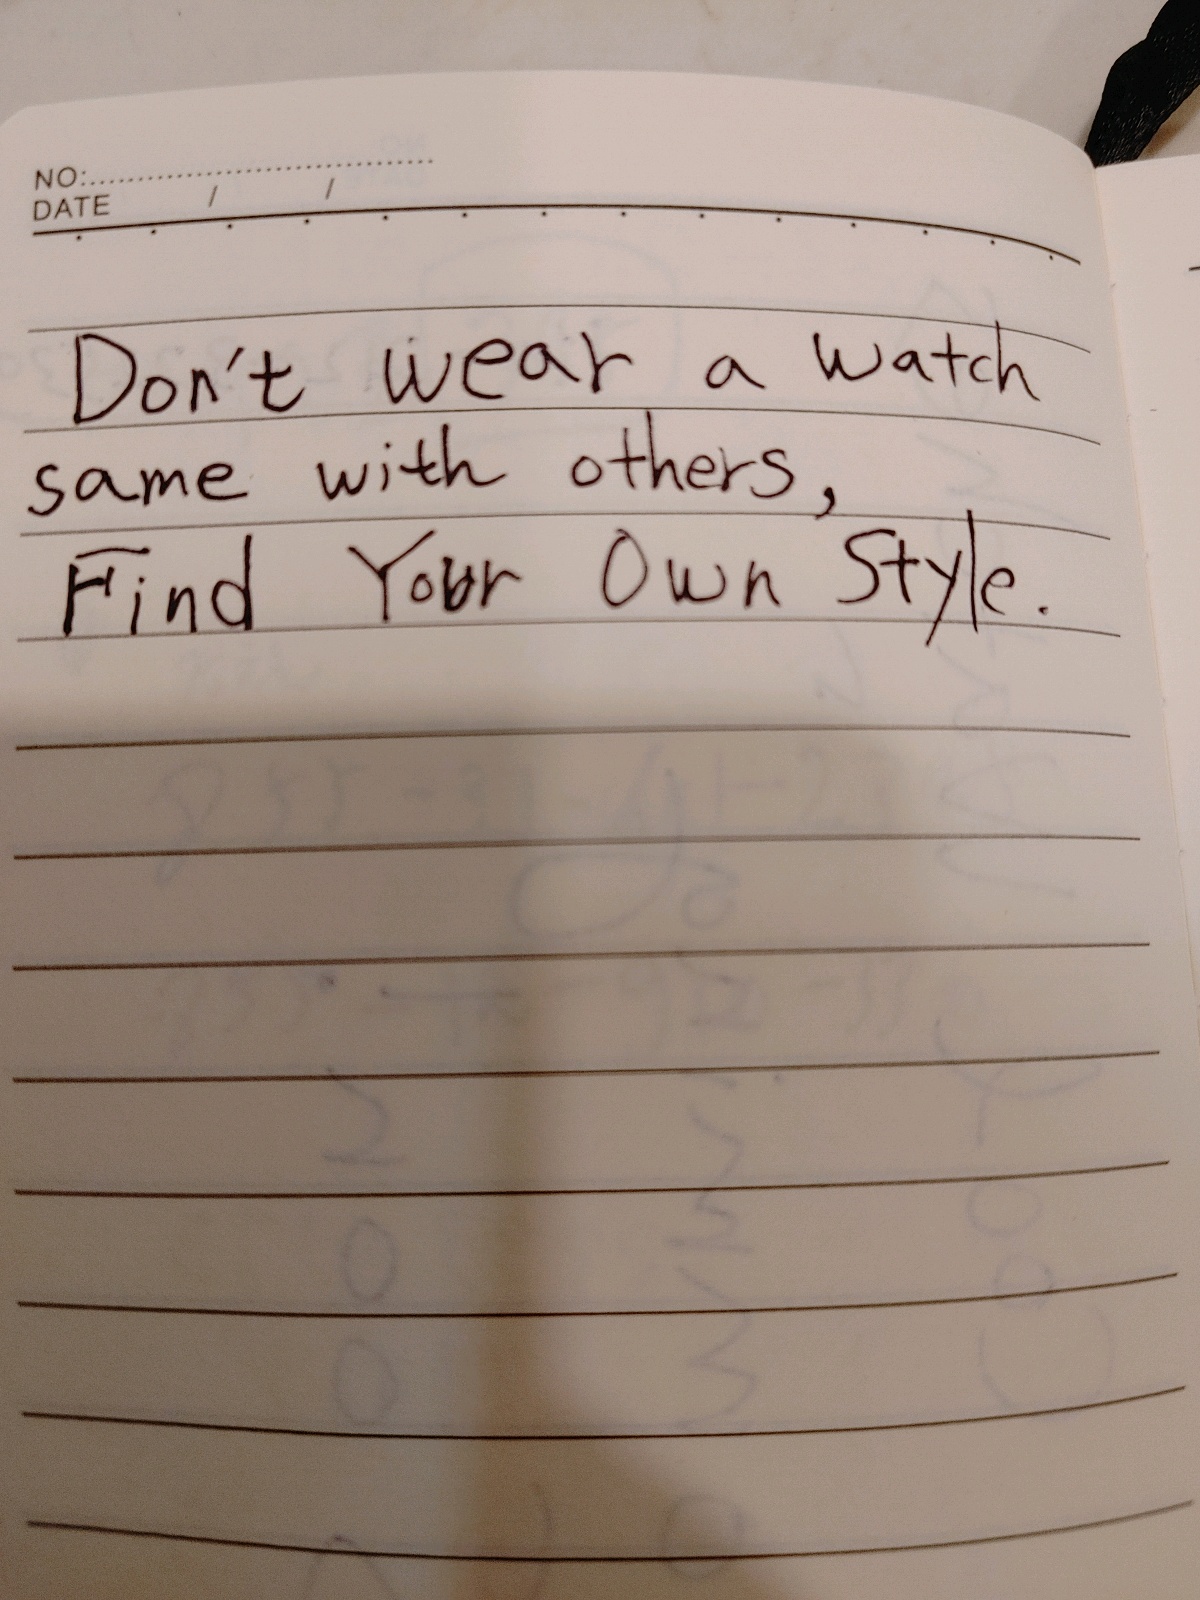 NO:
DATE / /
Don't wear a watch
same with others,
Find Your Own Style.